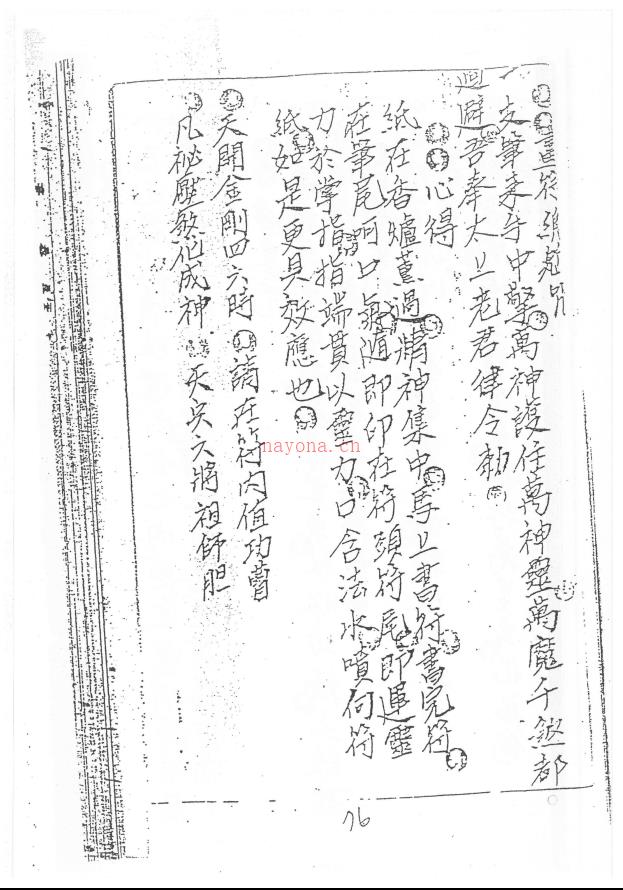 畫符總咒
支筆來手中擎萬神護任萬神靈萬魔千煞都
迴避吾奉太上老君律令勅
心得
紙在香爐薰過精神集中馬上書符書完符
在筆尾呵口氣隨即印在符頭符尾即運靈
力於掌指指端貫以靈力口含法水噴向符
紙如是更具效應也
天開金剛四六時 請在符內值功曹
凡祕壓煞化成神 天兵六將祖師胆
nayona.cn
76